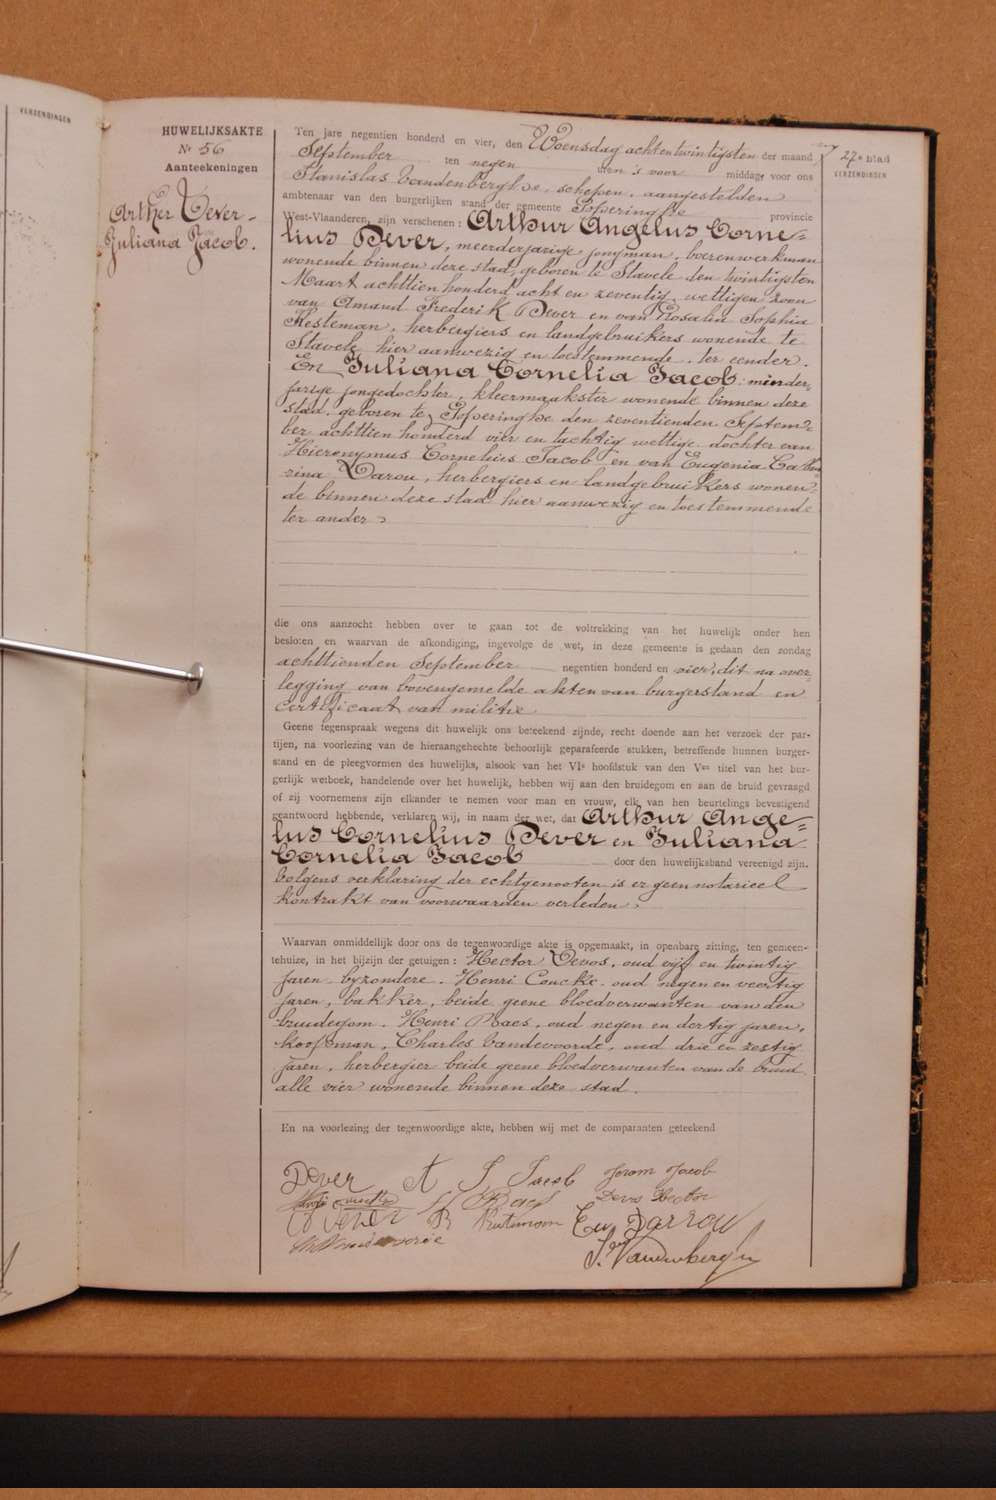 VERZENDINGEN
HUWELIJKSAKTE
Nr 56
Aanteekeningen
Arthur Dever -
Juliana Jacob.
27e blad
VERZENDINGEN
Ten jare negentien honderd en vier, den Woensdag achtentwintigsten der maand
September ten negen uren 's voor middags voor ons
Stanislas Vandenberghe, schepen, aangestelden
ambtenaar van den burgerlijken stand der gemeente Poperinghe provincie
West-Vlaanderen, zijn verschenen: Arthur Angelus Corne=
lius Dever, meerderjarige jongman, boerenwerkman
wonende binnen deze stad, geboren te Stavele den twintigsten
Maart achttien honderd acht en zeventig, wettigen zoon
van Amand Frederik Dever en van Rosalia Sophia
Kesteman, herbergiers en landgebruikers wonende te
Stavele hier aanwezig en toestemmende, ter eender.
En Juliana Cornelia Jacob minder,
jarige jongedochter, kleermaakster wonende binnen deze
stad, geboren te Poperinghe den zeventienden Septem=
ber achttien honderd vier en tachtig wettige dochter van
Hieronymus Cornelius Jacob en van Eugenia Catha
rina Darou, herbergiers en landgebruikers wonen=
de binnen deze stad hier aanwezig en toestemmende
ter ander
die ons aanzocht hebben over te gaan tot de voltrekking van het huwelijk onder hen
besloten en waarvan de afkondiging, ingevolge de wet, in deze gemeente is gedaan den zondag
achttienden September negentien honderd en vier, dit na over=
legging van bovengemelde akten van burgerstand en
certificaat van militie
Geene tegenspraak wegens dit huwelijk ons beteekend zijnde, recht doende aan het verzoek der par-
tijen, na voorlezing van de hieraangehechte behoorlijk geparafeerde stukken, betreffende hunnen burger-
stand en de pleegvormen des huwelijks, alsook van het VIe hoofdstuk van den Ven titel van het bur-
gerlijk wetboek, handelende over het huwelijk, hebben wij aan den bruidegom en aan de bruid gevraagd
of zij voornemens zijn elkander te nemen voor man en vrouw, elk van hen beurtelings bevestigend
geantwoord hebbende, verklaren wij, in naam der wet, dat Arthur Ange=
lus Cornelius Dever en Juliana
Cornelia Jacob door den huwelijksband vereenigd zijn.
Volgens verklaring der echtgenooten is er geen notarieel
kontrakt van voorwaarden verleden.
Waarvan onmiddelijk door ons de tegenwoordige akte is opgemaakt, in openbare zitting, ten gemeen-
tehuize, in het bijzijn der getuigen: Hector Devos, oud vijf en twintig
jaren byzondere, Henri Coucke, oud negen en veertig
jaren, bakker, beide geene bloedverwanten van den
bruidegom, Henri Baes, oud negen en dertig jaren,
koopman, Charles Vandevoorde, oud drie en zestig
jaren, herbergier beide geene bloedverwanten van de bruid
alle vier wonende binnen deze stad.
En na voorlezing der tegenwoordige akte, hebben wij met de comparanten geteekend
Dever A J Jacob Jerom Jacob
H Baes Devos Hector
Dever R Kesteman Eug Darrou
Ch Vandevoorde
S. Vandenberghe